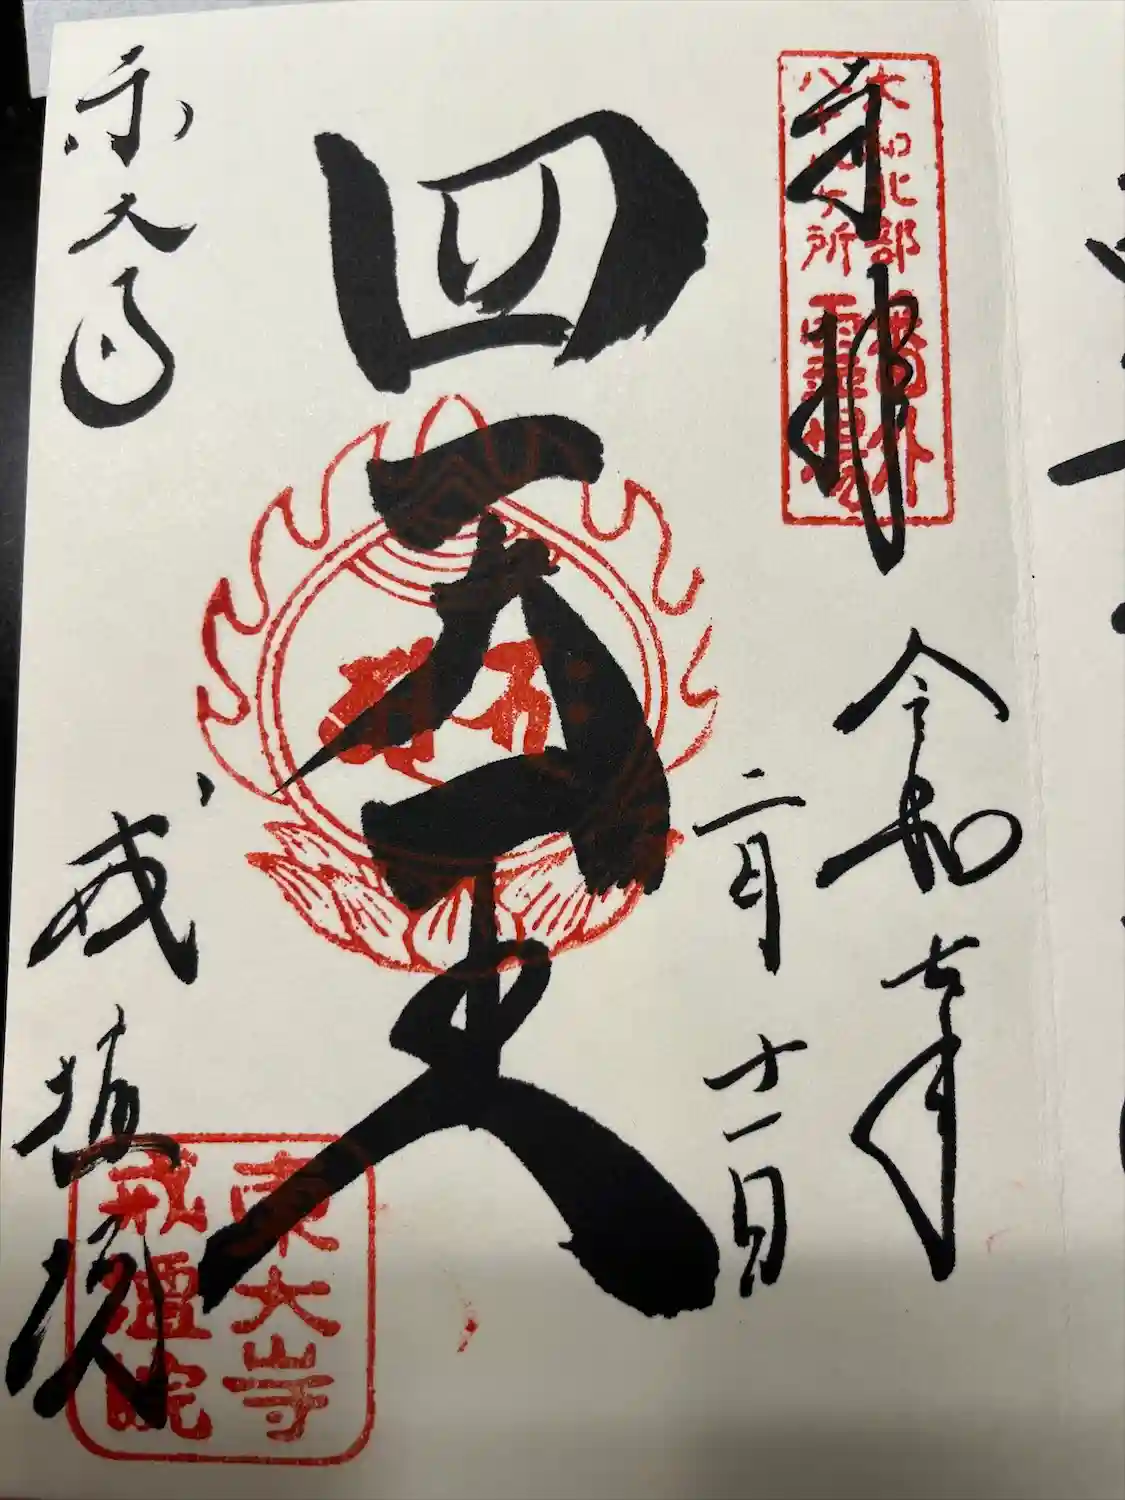 奉拝
大和北部
八十八ヶ所
番外
霊場
令和七年
二月十一日
四天王
東大寺
戒壇院
東大寺
戒壇院